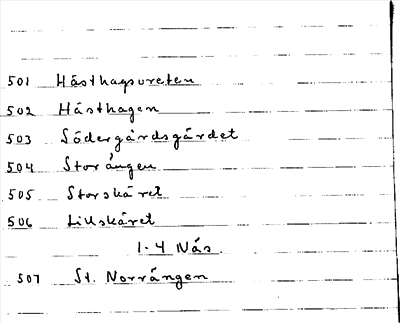 501 Hästhagsvreten
502 Hästhagen
503 Södergårdsgärdet
504 Storängen
505 Storskäret
506 Lillskäret
1-4 Näs.
507 St. Norrängen